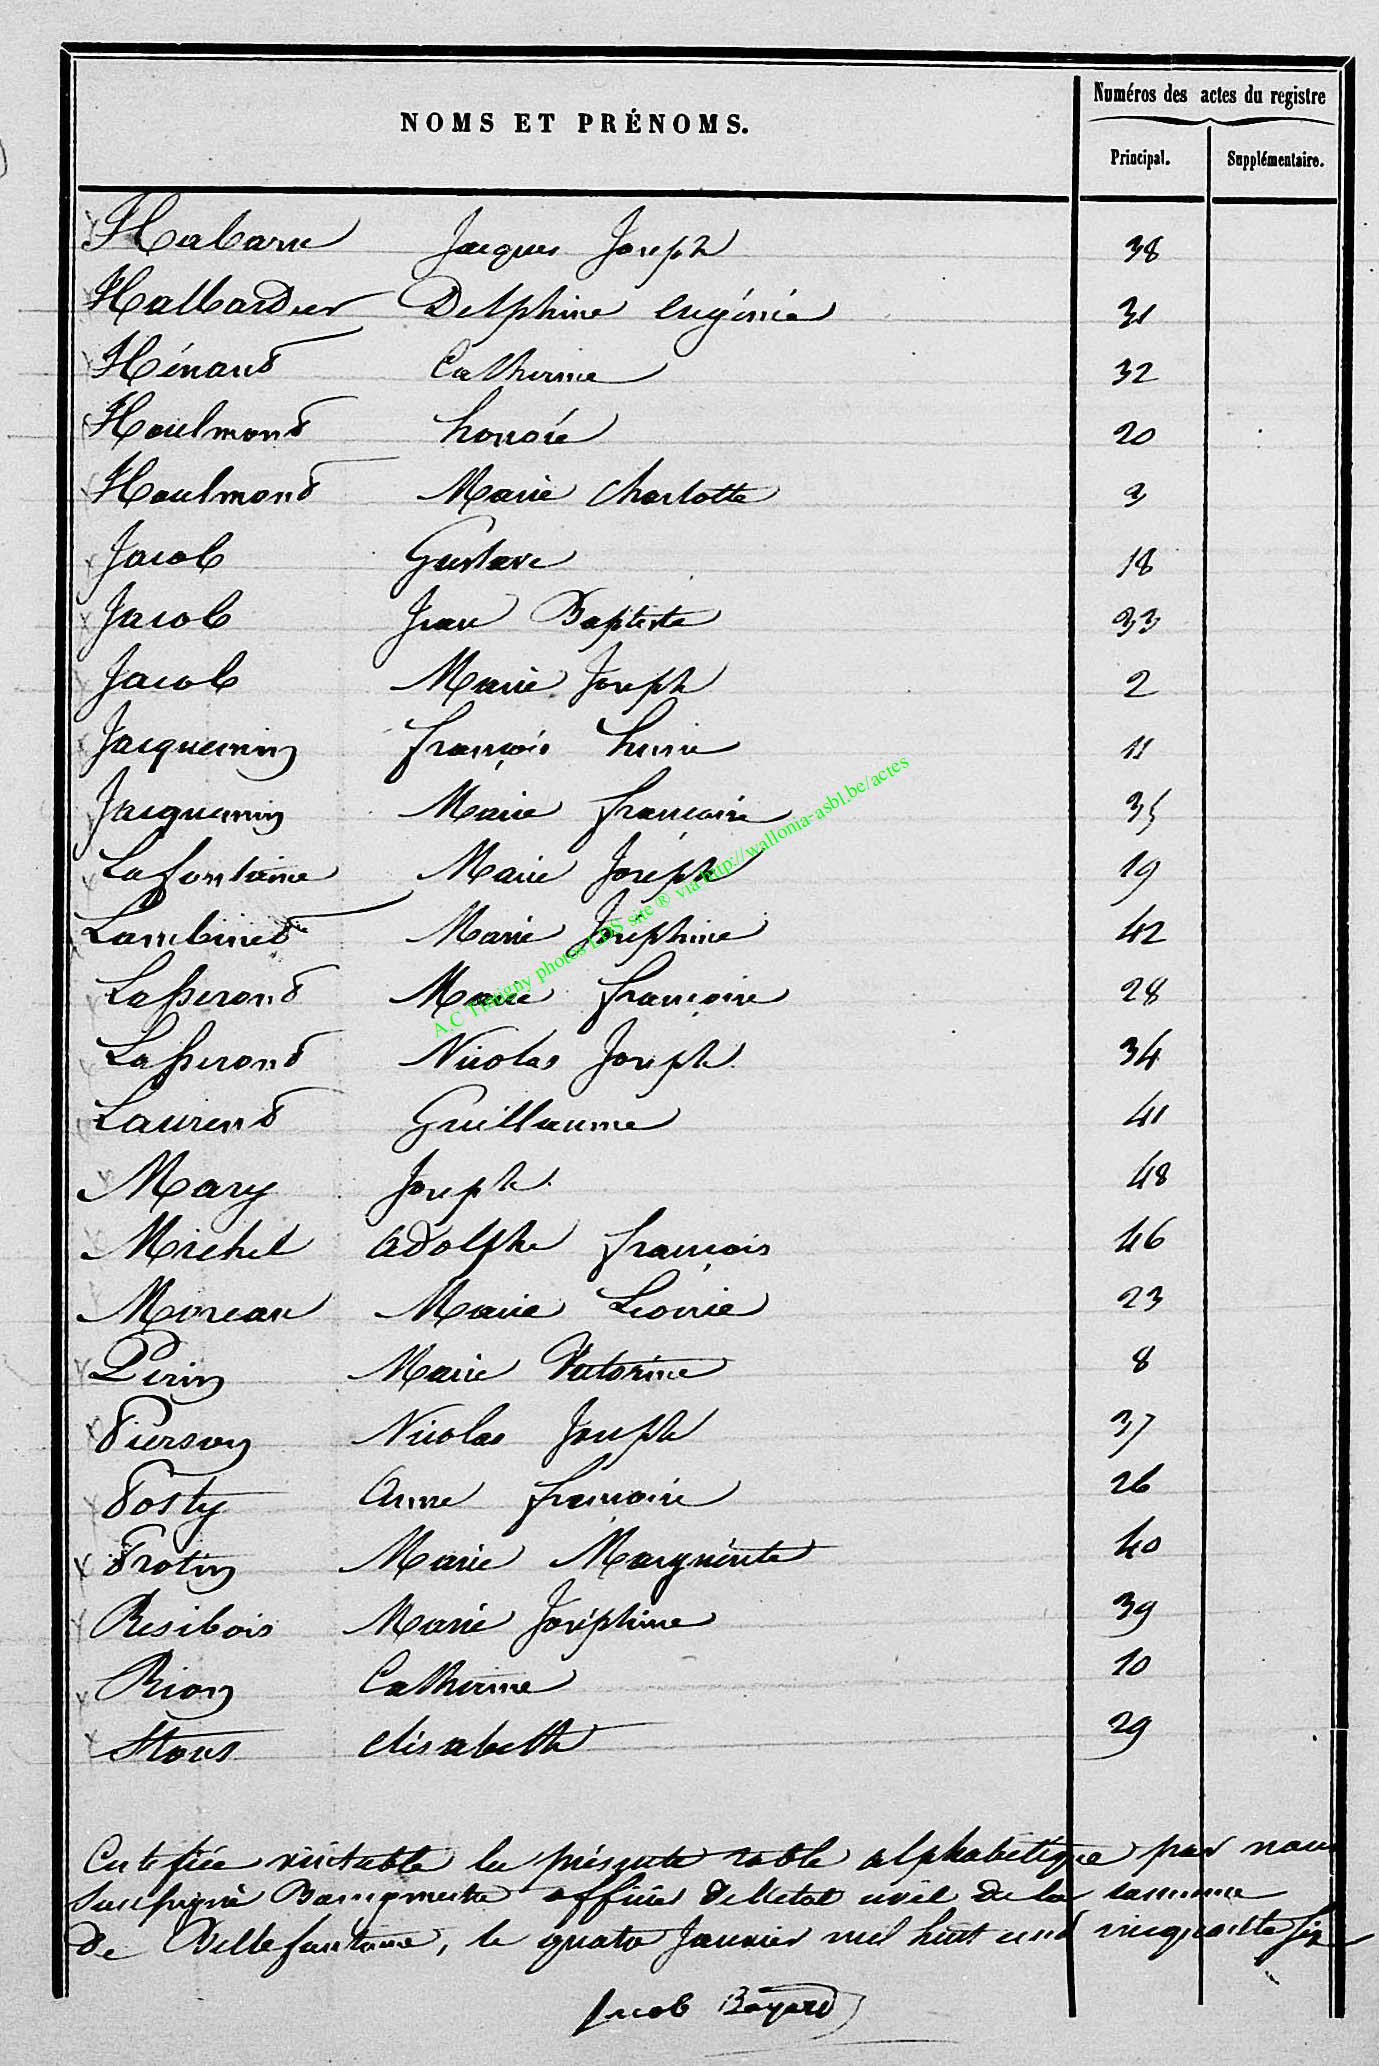 Numéros des actes du registre
NOMS ET PRÉNOMS.
Principal. Supplémentaire.
Habaru Jacques Joseph 38
Hallbardier Delphine Eugénie 31
Hénaud Catherine 32
Houlmond honoré 20
Houlmond Marie Charlotte 3
Jacob Gustave 18
Jacob Jean Baptiste 33
Jacob Marie Joseph 2
Jacquemin françois 11
Jacquemin Marie françoise 35
Lafontaine Marie Joseph 19
Lambinet Marie Joséphine 42
Lasserond Marie françoise 28
Lasserond Nicolas Joseph 34
Laurend Guillaume 41
Mary Joseph 48
Michel Adolphe françois 46
Moreau Marie Léonie 23
Perin Marie Victorine 8
Pierson Nicolas Joseph 37
Posty Anne françoise 26
Protin Marie Marguerite 40
Resibois Marie Joséphine 39
Rion Catherine 10
Stous elisabeth 29
Certifiée véritable la présente table alphabétique par nous
Soussigné Bourgmestre officier de l'état civil de la commune
de Bellefontaine, le quatre Janvier mil huit cent cinquante six
Jacob Bayard
A.C Tintigny photos LDS site ® via http://wallonia-asbl.be/actes